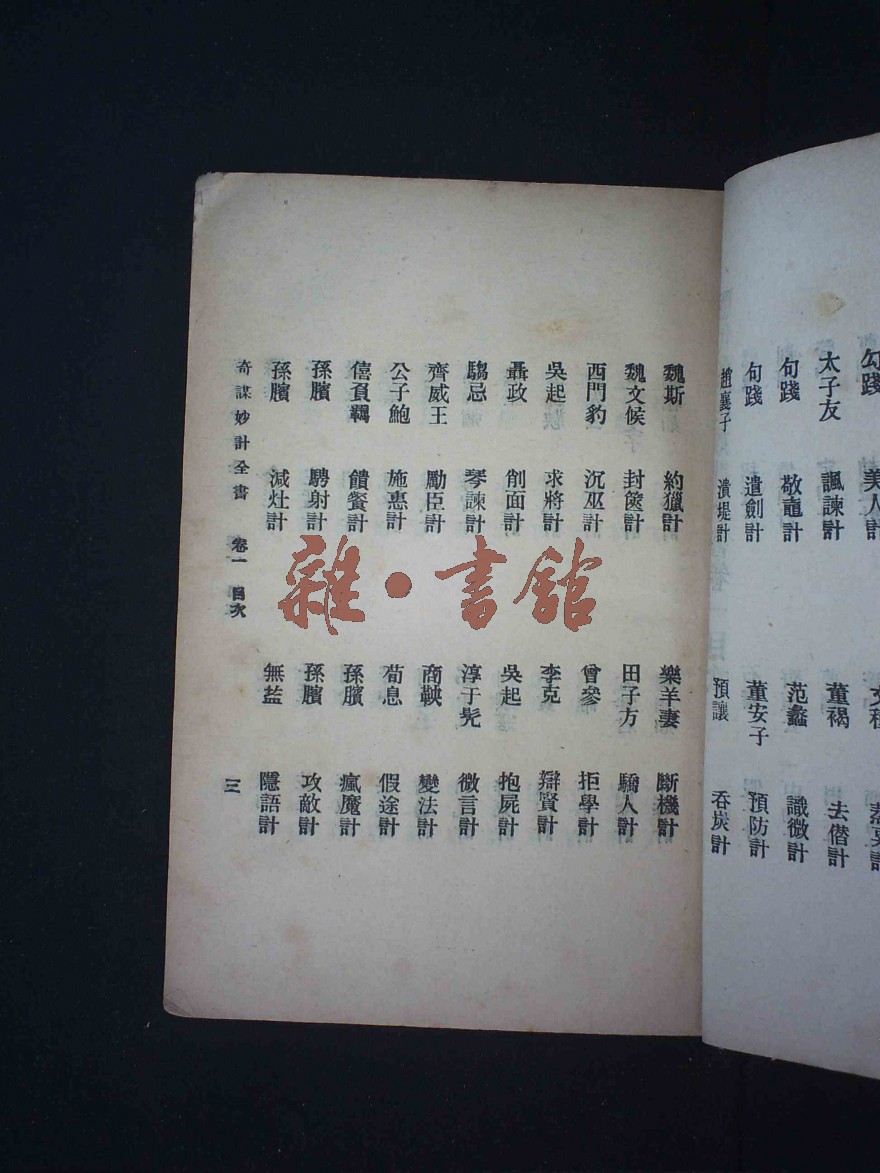 勾踐 美人計
太子友 諷諫計 董褐 去偕計
句踐 敬䵷計 范蠡 識微計
句踐 遣劍計 董安子 預防計
趙襄子 潰堤計 預讓 吞炭計
魏斯 約獵計 樂羊妻 斷機計
魏文侯 封篋計 田子方 驕人計
西門豹 沉巫計 曾參 拒學計
吳起 求將計 李克 辯賢計
聶政 削面計 吳起 抱屍計
騶忌 琴諫計 淳于髡 微言計
齊威王 勵臣計 商鞅 變法計
公子鮑 施惠計 荀息 假途計
僖負羈 饋餐計 孫臏 瘋魔計
孫臏 騁射計 孫臏 攻敵計
孫臏 減灶計 無盐 隱語計
奇謀妙計全書 卷一 目次 三
雜·書館